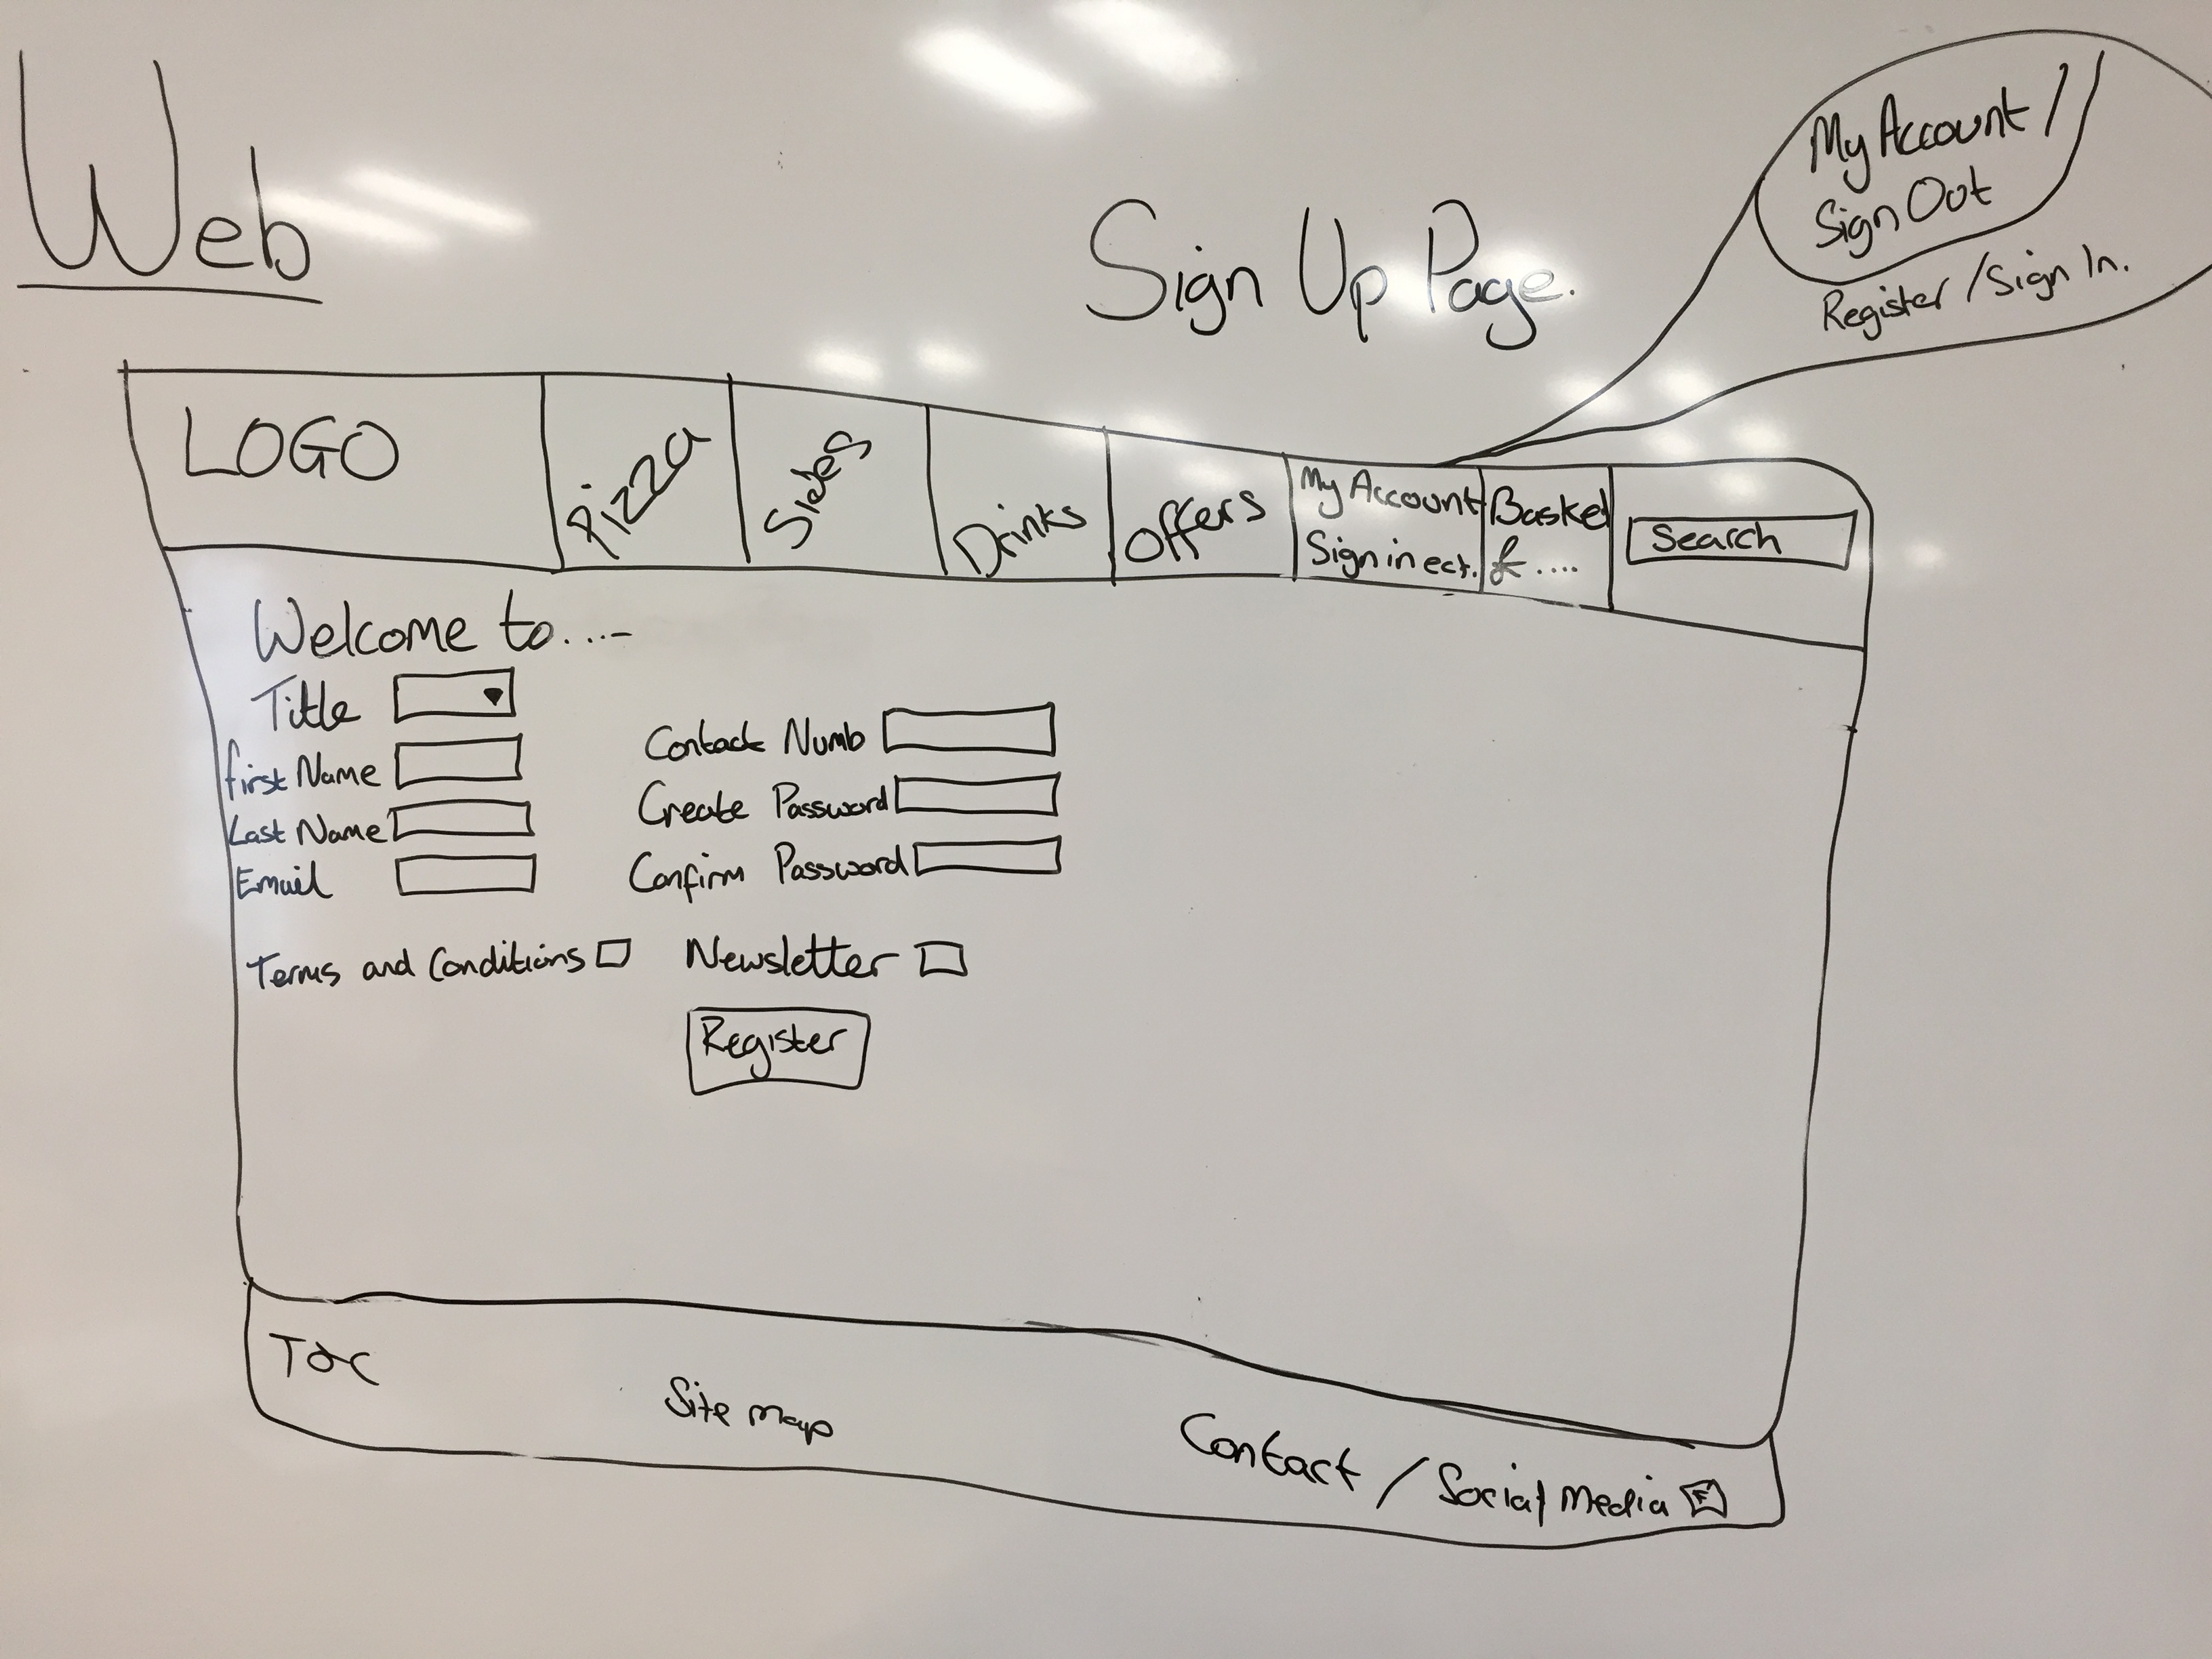 Web
Sign Up Page.
My Account /
Sign Out
Register / Sign In.
LOGO
Pizza
Sides
Drinks
Offers
My Account
Sign in ect.
Basket
£ ....
Search
Welcome to....-
Title
First Name
Last Name
Email
Contact Numb
Create Password
Confirm Password
Terms and Conditions
Newsletter
Register
Site map
Contact / Social Media F